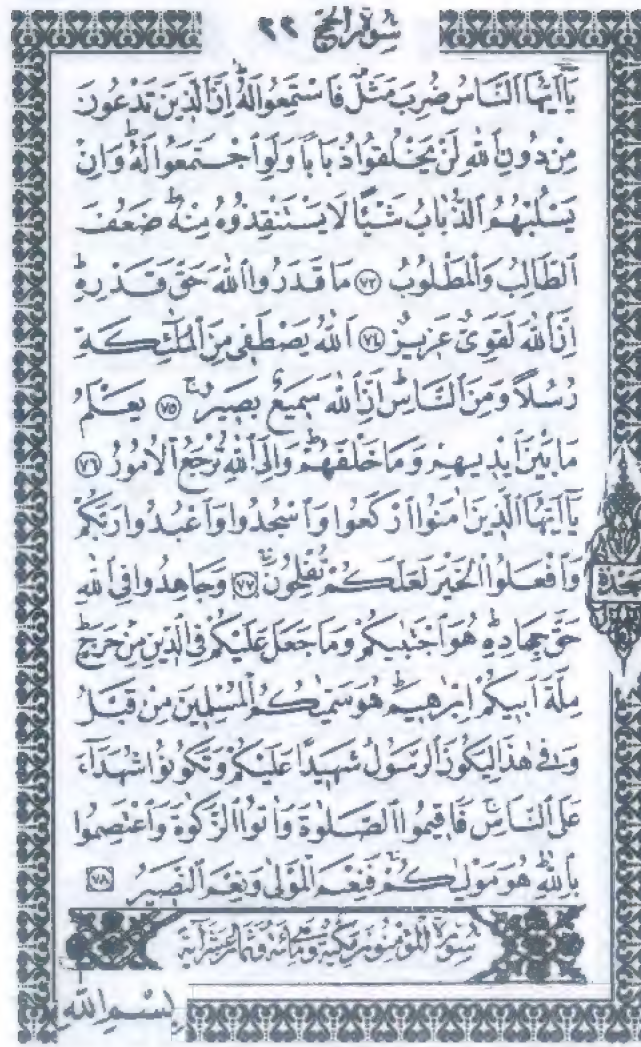 سورة الحج ٢٢
يَٓا اَيُّهَا النَّاسُ ضُرِبَ مَثَلٌ فَاسْتَمِعُوا لَهُۜ اِنَّ الَّذٖينَ تَدْعُونَ
مِنْ دُونِ اللّٰهِ لَنْ يَخْلُقُوا ذُبَابًا وَلَوِ اجْتَمَعُوا لَهُۜ وَاِنْ
يَسْلُبْهُمُ الذُّبَابُ شَيْـًٔا لَا يَسْتَنْقِذُوهُ مِنْهُۜ ضَعُفَ
الطَّالِبُ وَالْمَطْلُوبُ ٧٣ مَا قَدَرُوا اللّٰهَ حَقَّ قَدْرِهٖۜ
اِنَّ اللّٰهَ لَقَوِىٌّ عَزٖيزٌ ٧٤ اَللّٰهُ يَصْطَفٖى مِنَ الْمَلٰٓئِكَةِ
رُسُلًا وَمِنَ النَّاسِۜ اِنَّ اللّٰهَ سَمٖيعٌ بَصٖيرٌۚ ٧٥ يَعْلَمُ
مَا بَيْنَ اَيْدٖيهِمْ وَمَا خَلْفَهُمْۜ وَاِلَى اللّٰهِ تُرْجَعُ الْاُمُورُ ٧٦
يَٓا اَيُّهَا الَّذٖينَ اٰمَنُوا ارْكَعُوا وَاسْجُدُوا وَاعْبُدُوا رَبَّكُمْ
وَافْعَلُوا الْخَيْرَ لَعَلَّكُمْ تُفْلِحُونَۚ ٧٧ وَجَاهِدُوا فِى اللّٰهِ
سجدة
حَقَّ جِهَادِهٖۜ هُوَ اجْتَبٰيكُمْ وَمَا جَعَلَ عَلَيْكُمْ فِى الدّٖينِ مِنْ حَرَجٍۜ
مِلَّةَ اَبٖيكُمْ اِبْرٰهٖيمَۜ هُوَ سَمّٰيكُمُ الْمُسْلِمٖينَ مِنْ قَبْلُ
وَفٖى هٰذَا لِيَكُونَ الرَّسُولُ شَهٖيدًا عَلَيْكُمْ وَتَكُونُوا شُهَدَٓاءَ
عَلَى النَّاسِۚ فَاَقٖيمُوا الصَّلٰوةَ وَاٰتُوا الزَّكٰوةَ وَاعْتَصِمُوا
بِاللّٰهِۜ هُوَ مَوْلٰيكُمْۚ فَنِعْمَ الْمَوْلٰى وَنِعْمَ النَّصٖيرُ ٧٨
سورة المؤمنون مكية وهي مائة وثماني عشرة آية
بِسْمِ اللّٰهِ